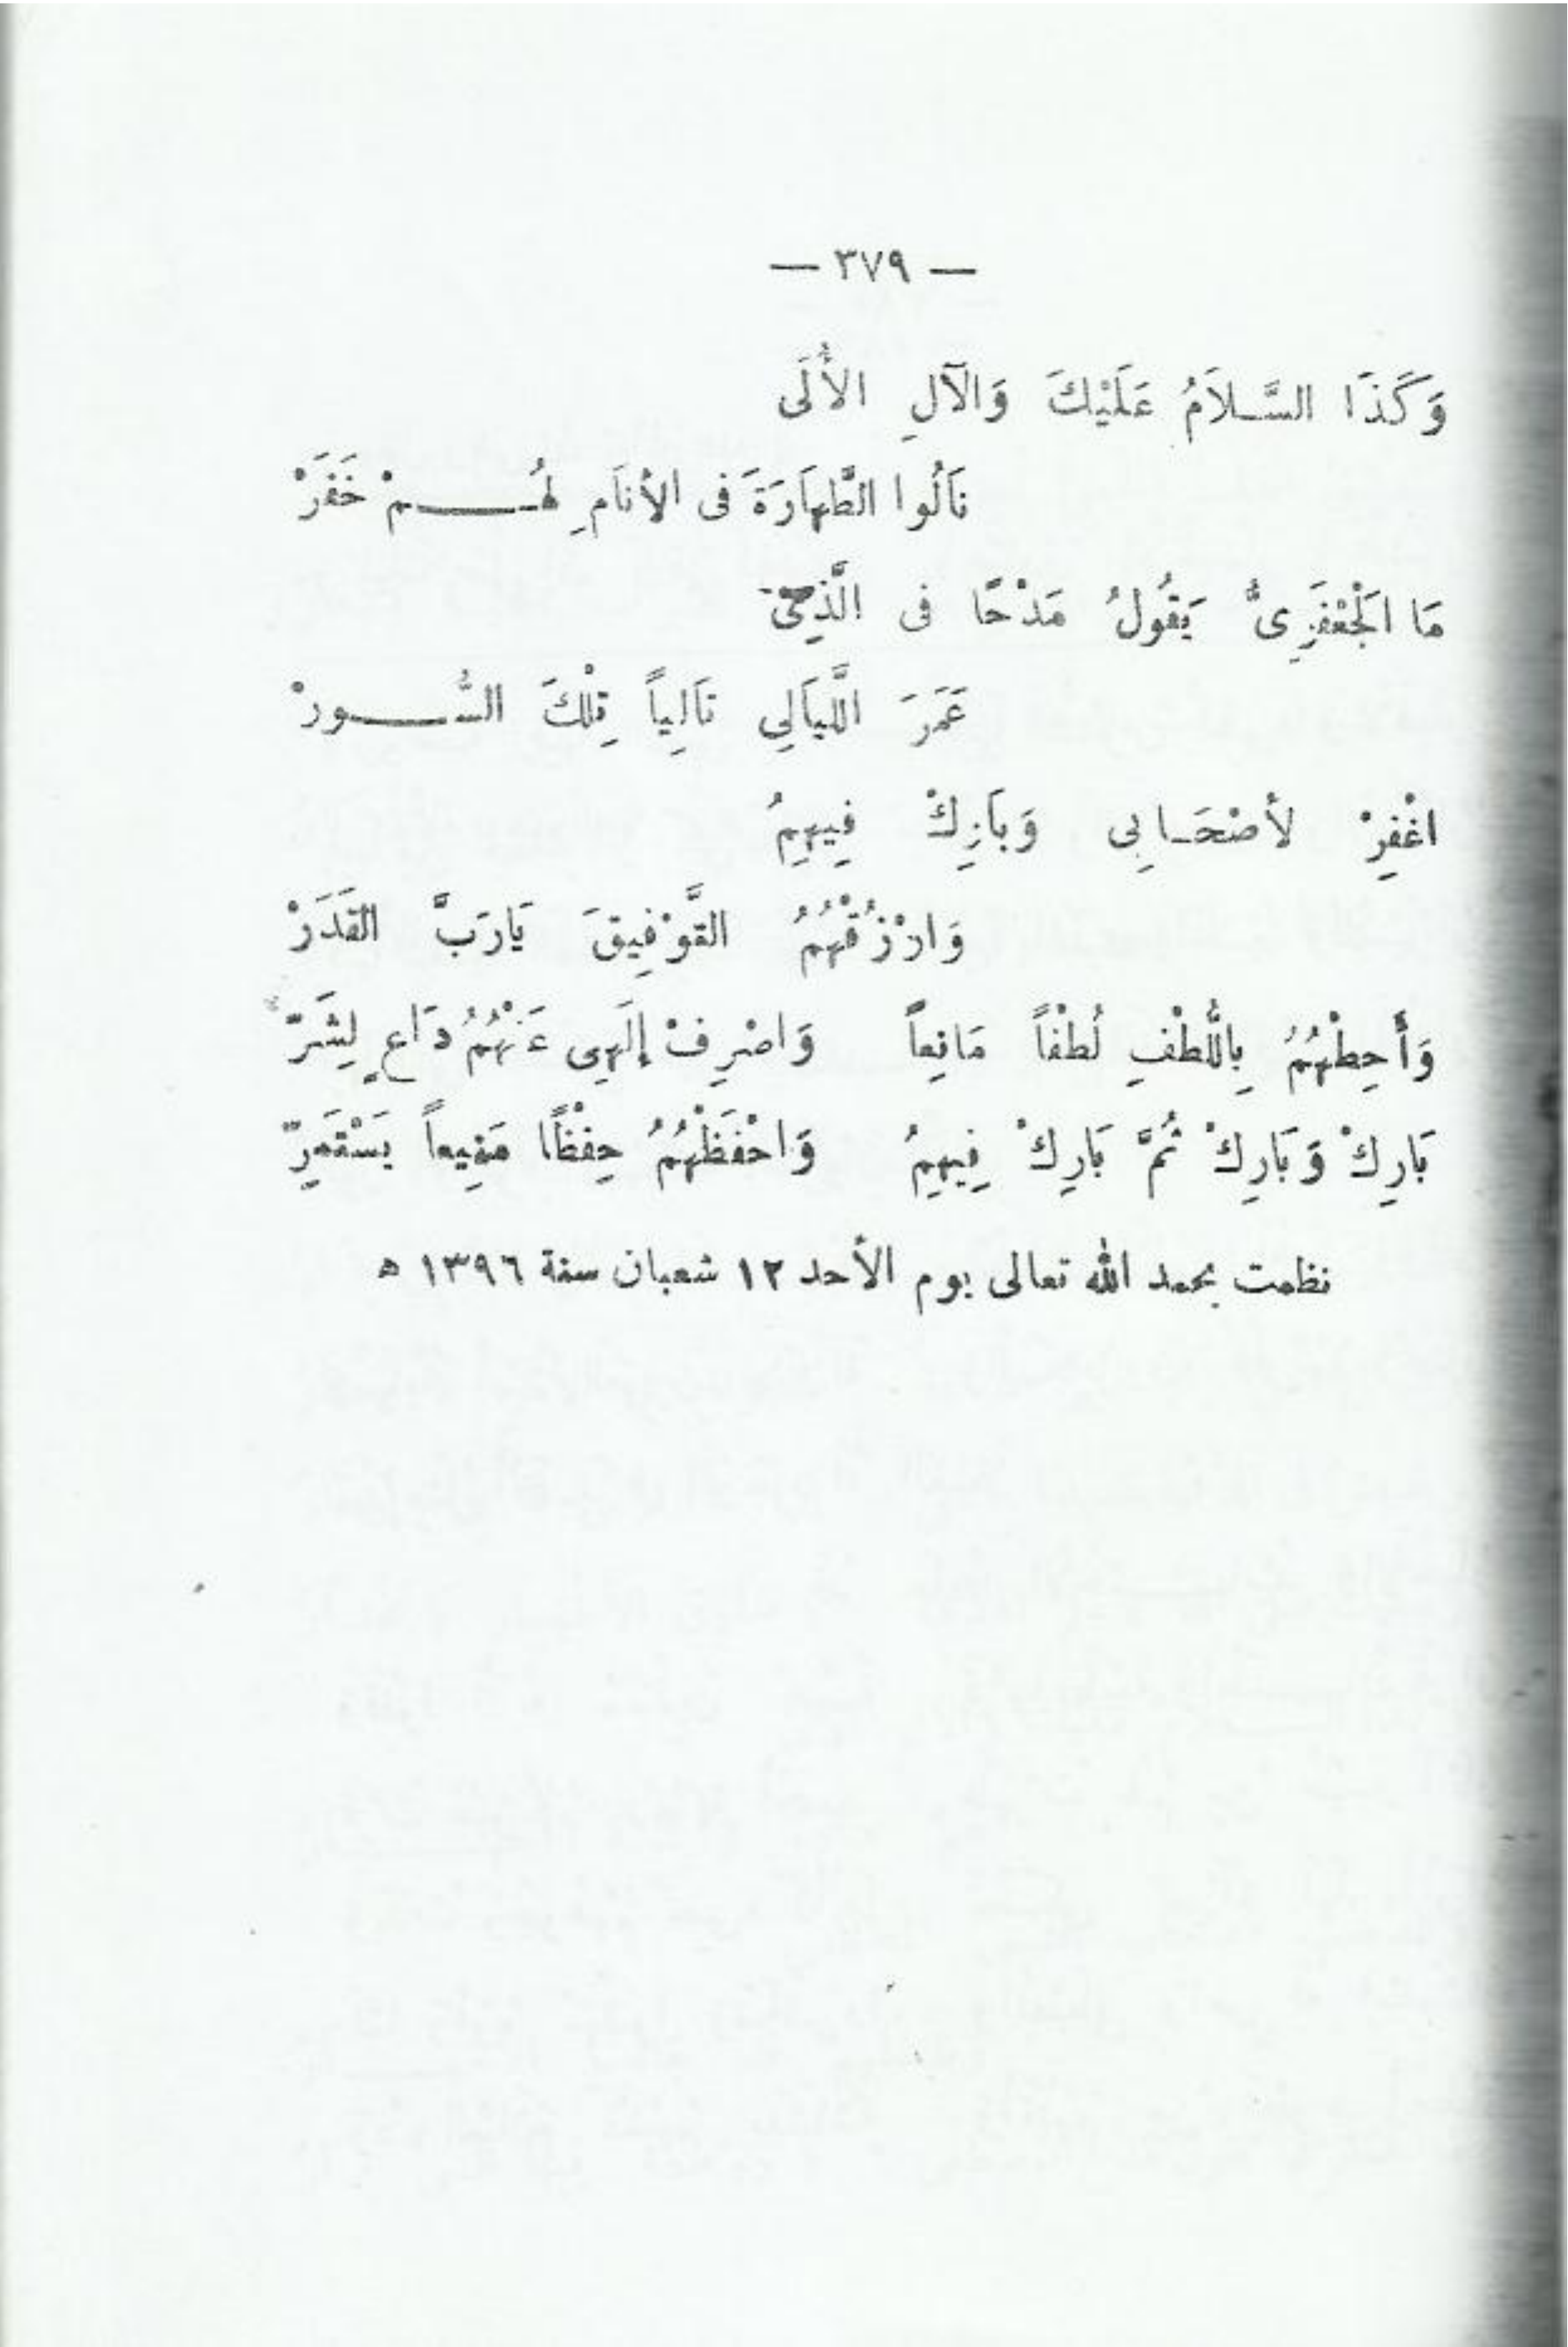 — ٣٧٩ —
وَكَذَا السَّلاَمُ عَلَيْكَ وَالآلِ الأُلَى
نَالُوا الطَّهَارَةَ فى الأنَامِ لهُمْ خَفَرْ
مَا الجَعْفَرِىُّ يَقُولُ مَدْحًا فى الَّذِى
عَمَرَ اللَّيَالِي تَالِياً تِلْكَ السُّورْ
اغْفِرْ لأصْحَابِى وَبَارِكْ فِيهِمُ
وَارْزُقْهُمُ التَّوْفِيقَ يَارَبَّ القَدَرْ
وَأَحِطْهُمُ بِاللُّطْفِ لُطْفاً مَانِعاً وَاصْرِفْ إلَهِى عَنْهُمُ دَاعٍ لِشَرّْ
بَارِكْ وَبَارِكْ ثُمَّ بَارِكْ فِيهِمُ وَاحْفَظْهُمُ حِفْظًا مَنِيعاً يَسْتَمِرّْ
نظمت بحمد الله تعالى يوم الأحد ١٢ شعبان سنة ١٣٩٦ ه